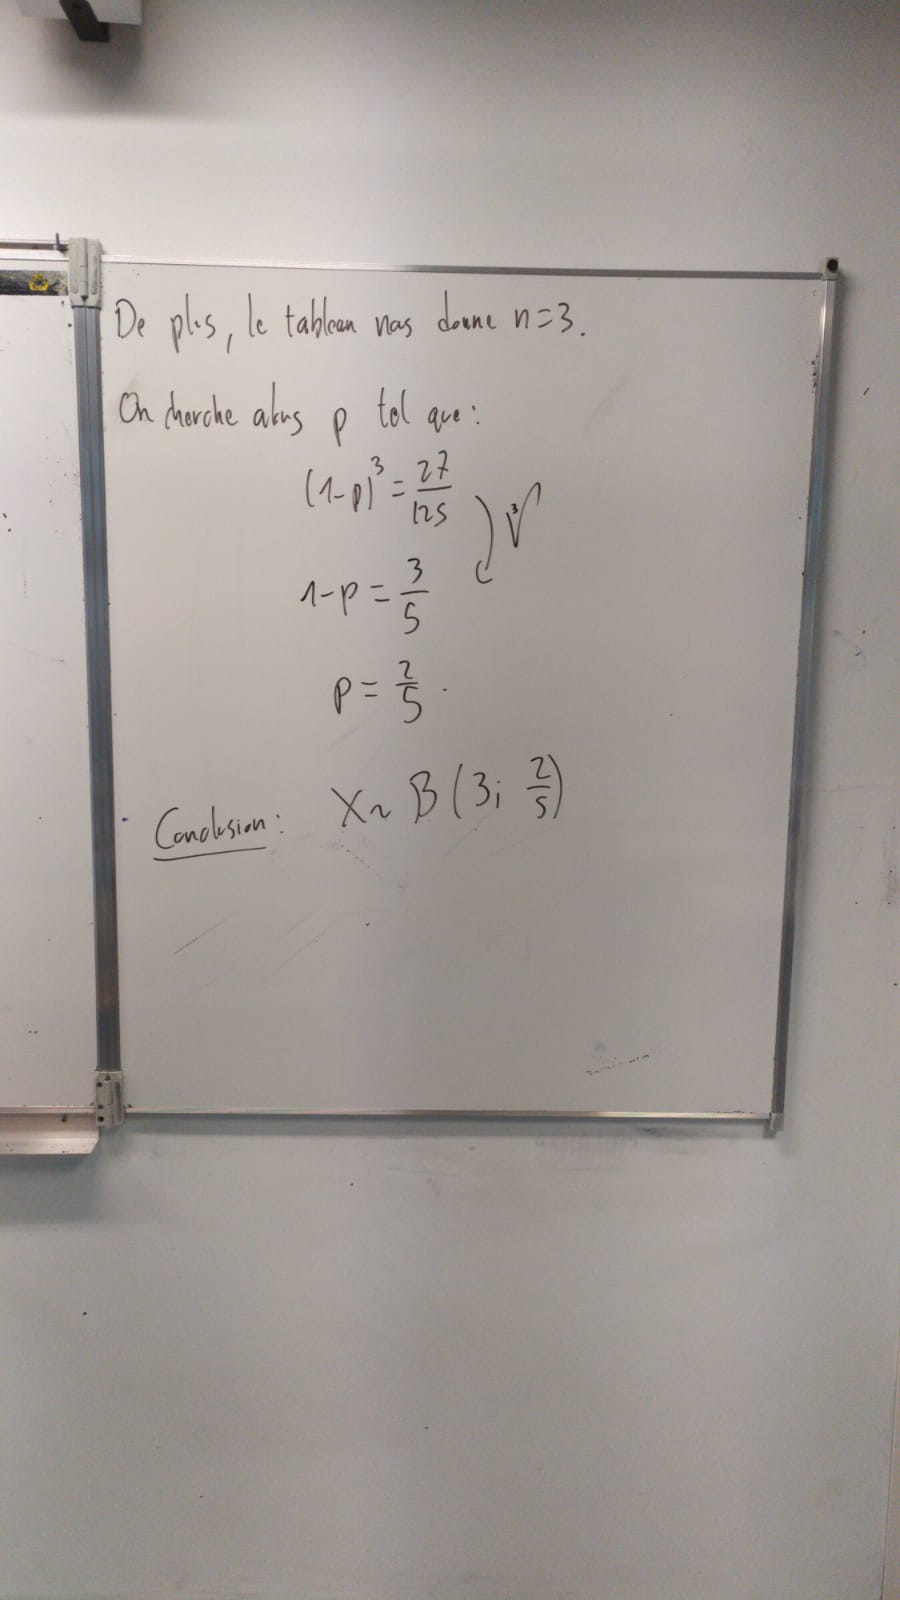 De plus, le tableau nous donne n=3.
On cherche alors p tel que :
(1-p)³ = 27/125
∛
1-p = 3/5
p = 2/5.
Conclusion : X ~ B(3; 2/5)